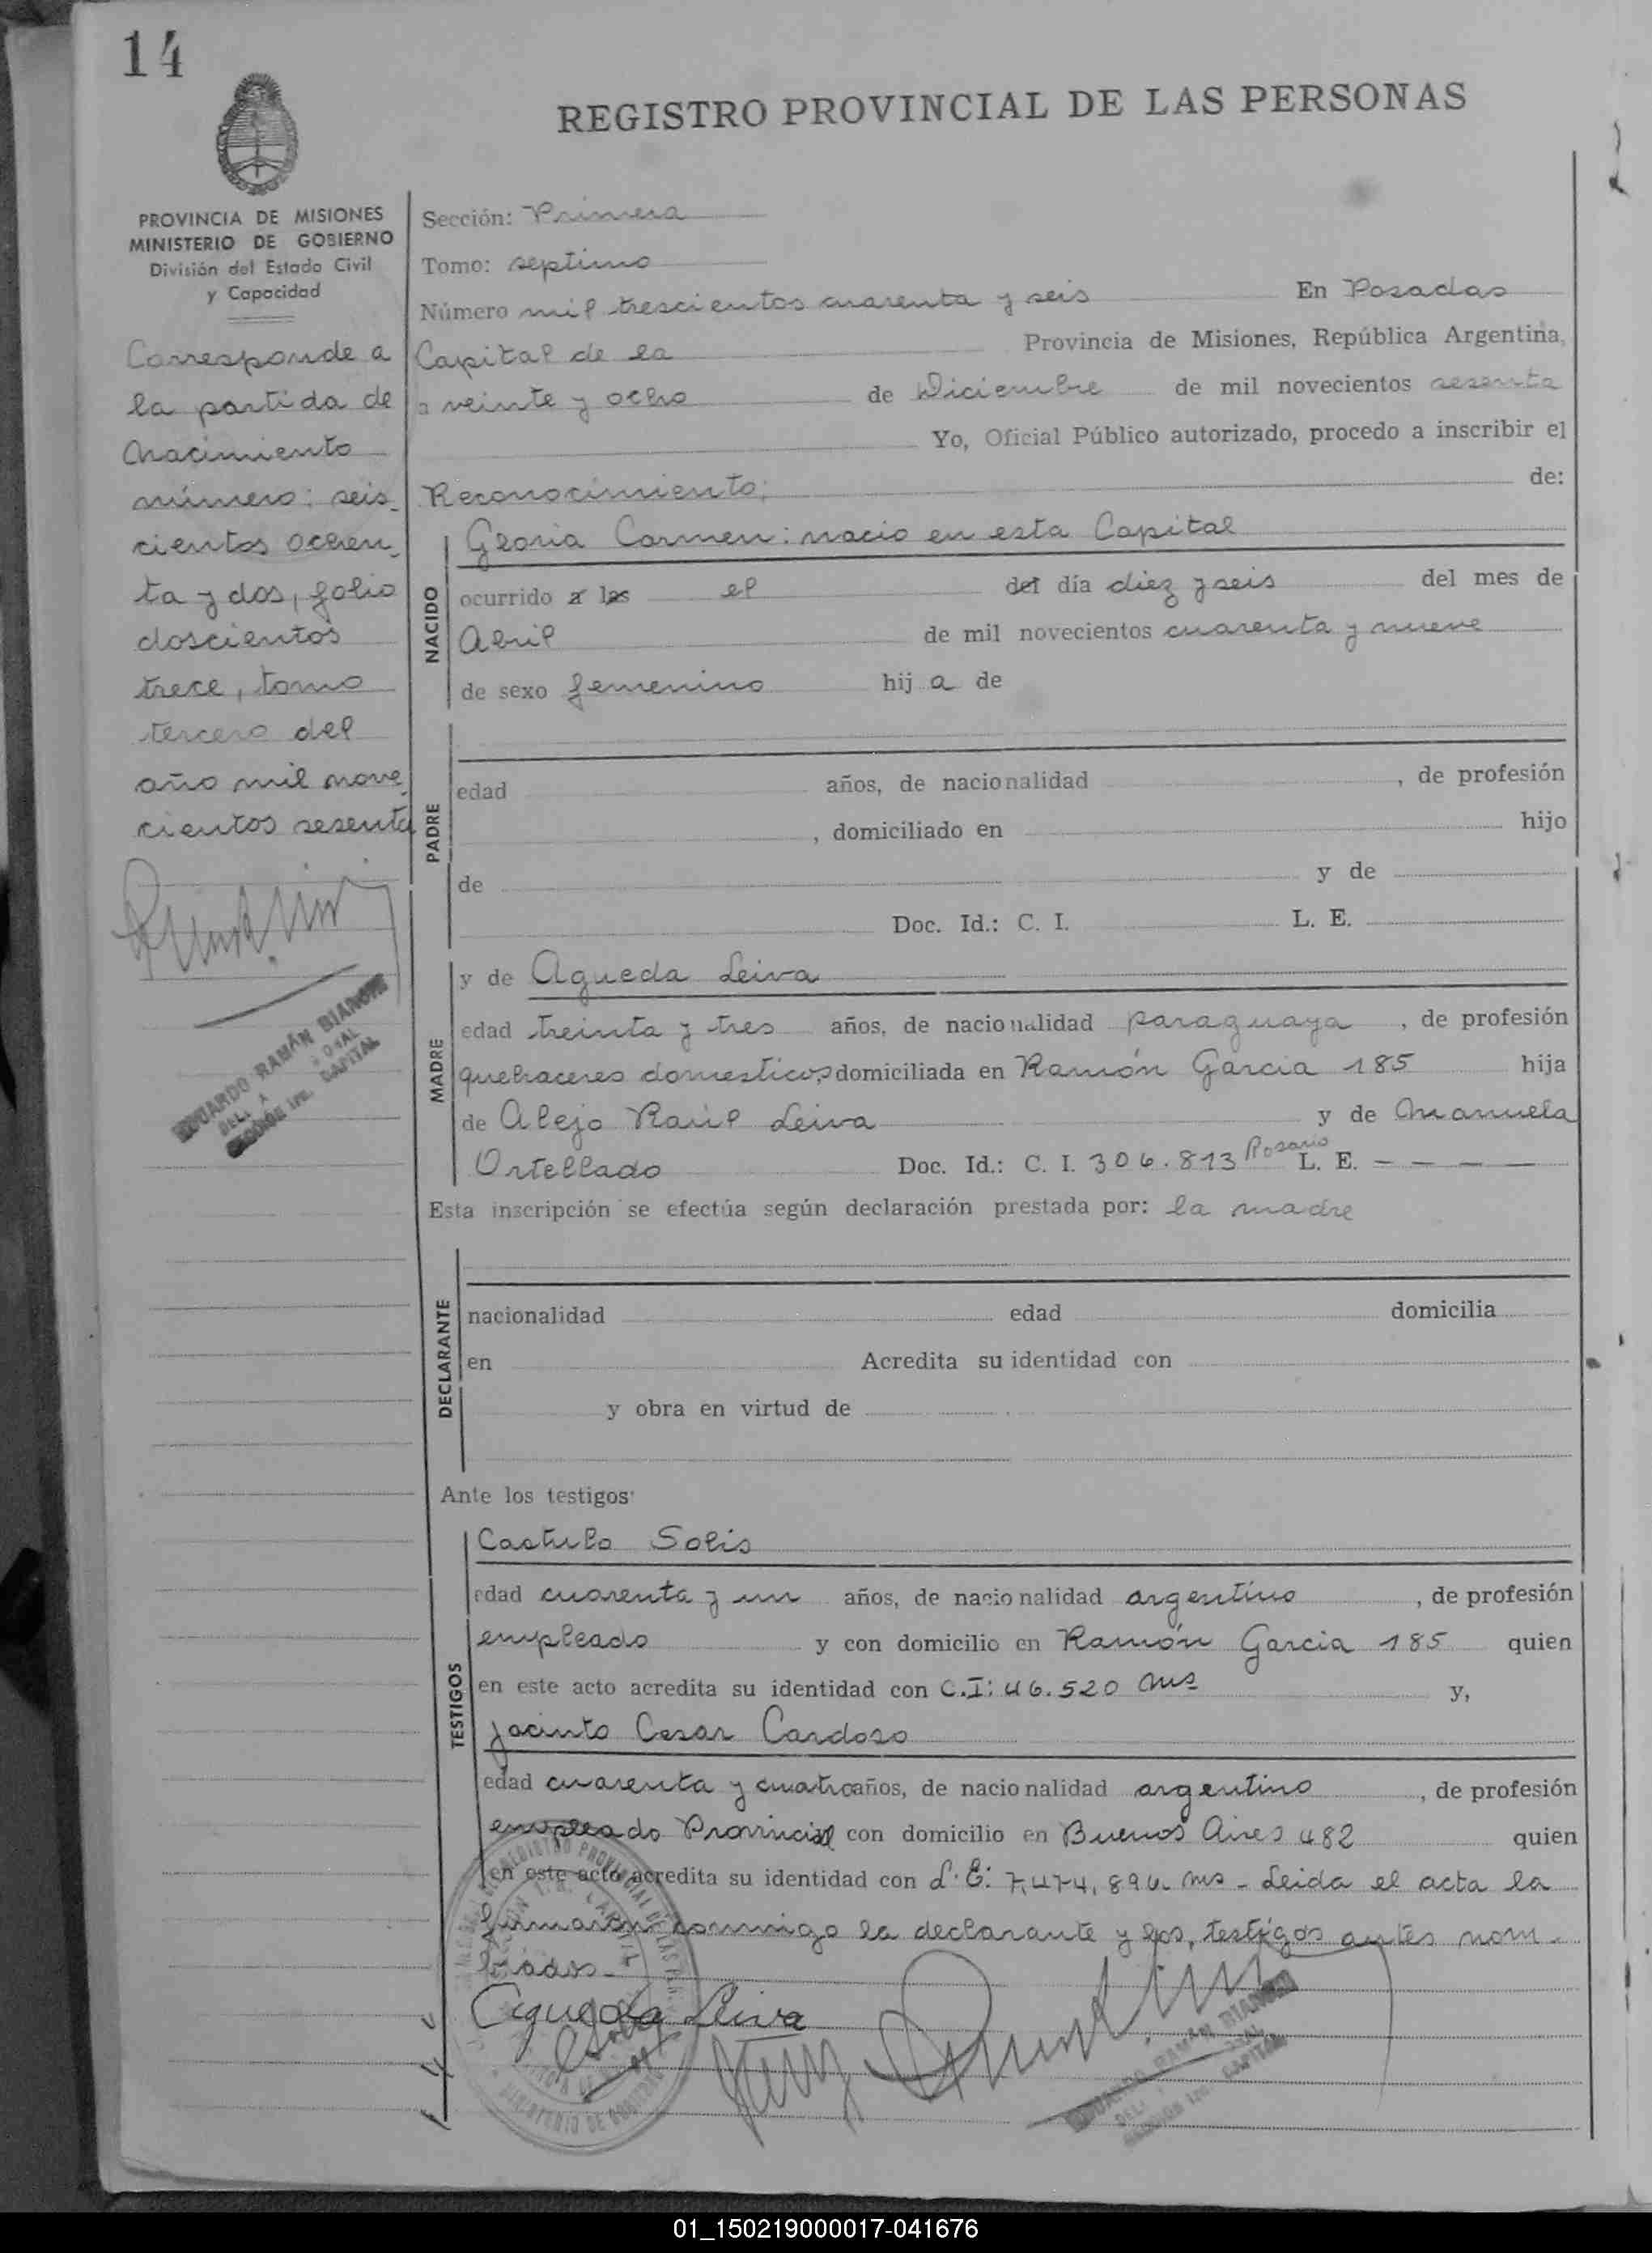 14
REGISTRO PROVINCIAL DE LAS PERSONAS
PROVINCIA DE MISIONES
MINISTERIO DE GOBIERNO
División del Estado Civil
y Capacidad
Corresponde a
la partida de
Nacimiento
número: seis_
cientos ochen_
ta y dos, folio
doscientos
trece, tomo
tercero del
año mil nove_
cientos sesenta
EDUARDO RAMÓN BIANCHI
SECCIÓN 1ra. CAPITAL
Sección: Primera
Tomo: septimo
Número mil trescientos cuarenta y seis En Posadas
Capital de la Provincia de Misiones, República Argentina,
a veinte y ocho de Diciembre de mil novecientos sesenta
Yo, Oficial Público autorizado, procedo a inscribir el
Reconocimiento; de:
NACIDO
Gloria Carmen: nacio en esta Capital
ocurrido a las el del día diez y seis del mes de
Abril de mil novecientos cuarenta y nueve
de sexo femenino hij a de
PADRE
edad años, de nacionalidad , de profesión
, domiciliado en hijo
de y de
Doc. Id.: C. I. L. E.
MADRE
y de Agueda Leiva
edad treinta y tres años, de nacionalidad paraguaya , de profesión
quehaceres domesticos, domiciliada en Ramón Garcia 185 hija
de Alejo Raúl Leiva y de Manuela
Ortellado Doc. Id.: C. I. 306.813 Rosario L. E. – – – –
Esta inscripción se efectúa según declaración prestada por: la madre
DECLARANTE
nacionalidad edad domicilia
en Acredita su identidad con
y obra en virtud de
Ante los testigos:
TESTIGOS
Castulo Solis
edad cuarenta y un años, de nacionalidad argentino , de profesión
empleado y con domicilio en Ramón Garcia 185 quien
en este acto acredita su identidad con C.I: 46.520 Mns y,
Jacinto Cesar Cardozo
edad cuarenta y cuatro años, de nacionalidad argentino , de profesión
empleado Provincial con domicilio en Buenos Aires 482 quien
en este acto acredita su identidad con L.E: 7,474,894 Mns - Leida el acta la
firmaron conmigo la declarante y los, testigos antes nom_
brados_
Agueda Leiva
CSolis
EDUARDO RAMÓN BIANCHI
SECCIÓN 1ra. CAPITAL
01_150219000017-041676